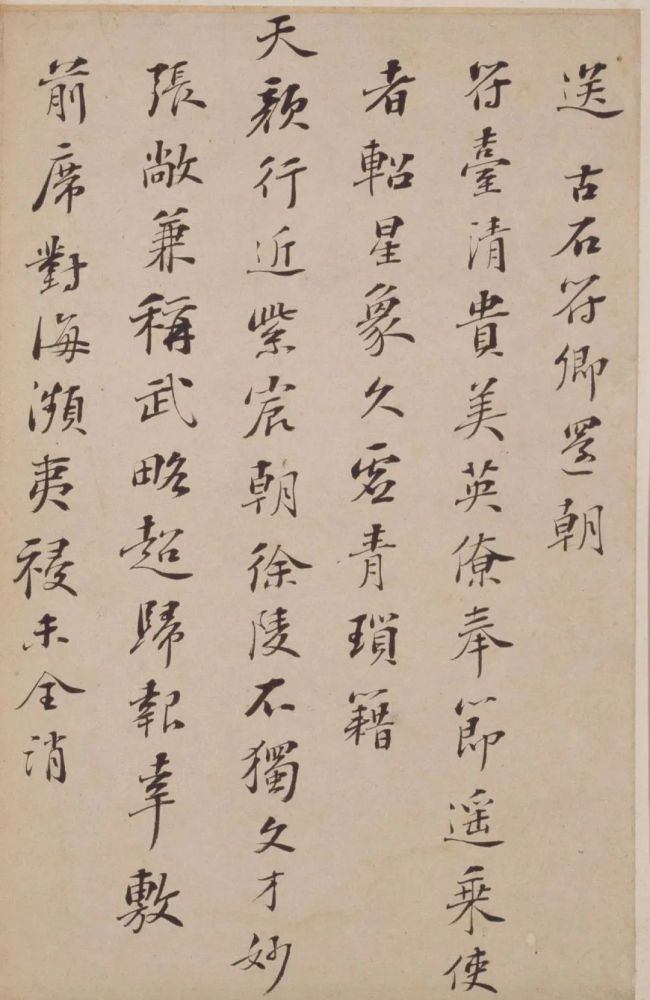 送 古石符卿還朝
符臺清貴美英僚奉節遥乗使
者軺星象久虚青瑣籍
天顔行近紫宸朝徐陵不獨文才妙
張敞兼稱武略超歸報幸敷
前席對海濒夷祲未全消